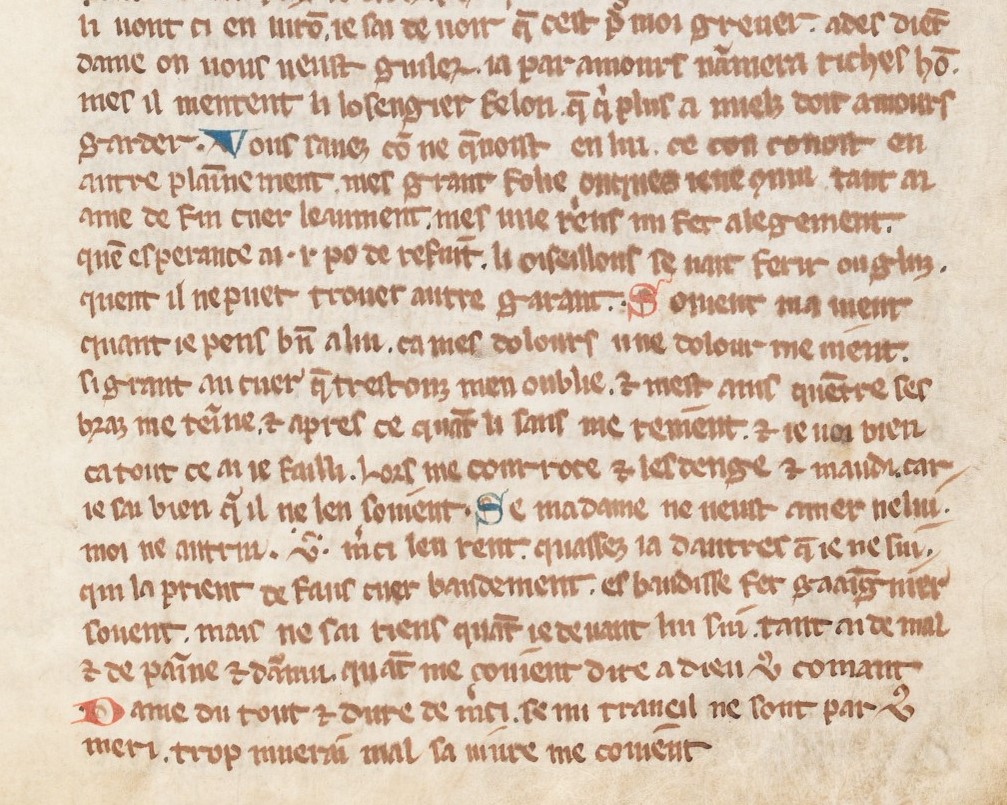 li uont ci en uirō. ie sai de uoir q̄ cest p̄ moi greuer. ades dient
dame on uous ueust guiler. ia par amours nāmera riches hō.
mes il mentent li losengier felon. q̄ q̇ plus a miels doit amours
garder. Vous sauez cō ne q̄noist en lui. ce con conoist en
autre plainnement. mes grant folie tant ai
ame de fin cuer leaument. mes une riens mi fet alegement.
quē esperance ai .i. po de refuit. li oiseillons se uait ferir ou gluz.
quent il ne puet trouer autre garant. Souient ma uient
quant ie pens bn̄ a lui. ca mes dolours une dolour me uient.
si grant au cuer q̄ trestouz men oublie. ⁊ mest auis quētre ses
braz me teīne. ⁊ apres ce quāt li sans me reuient. ⁊ ie uoi bien
ca tout ce ai ie failli. Lors me courroce ⁊ lesdenge ⁊ maudi. car
ie sai bien q̄ il ne len souient. Se ma dame ne ueust amer nelui.
moi ne autrui. m̄ci len rent. quassez ia dautres q̄ ie ne sui.
qui la prient de faus cuer baudement. esbaudisse fet gaaignier
souent. mais ne sai riens quāt ie deuant lui sui. tant ai de mal
⁊ de paīne ⁊ dānui. quāt me couient dire a dieu v̄ comant
Dame du tout ⁊ dure de m̄ci. se mi traueil ne sont par v̄
meri. trop muerai mal sa uiure me couient